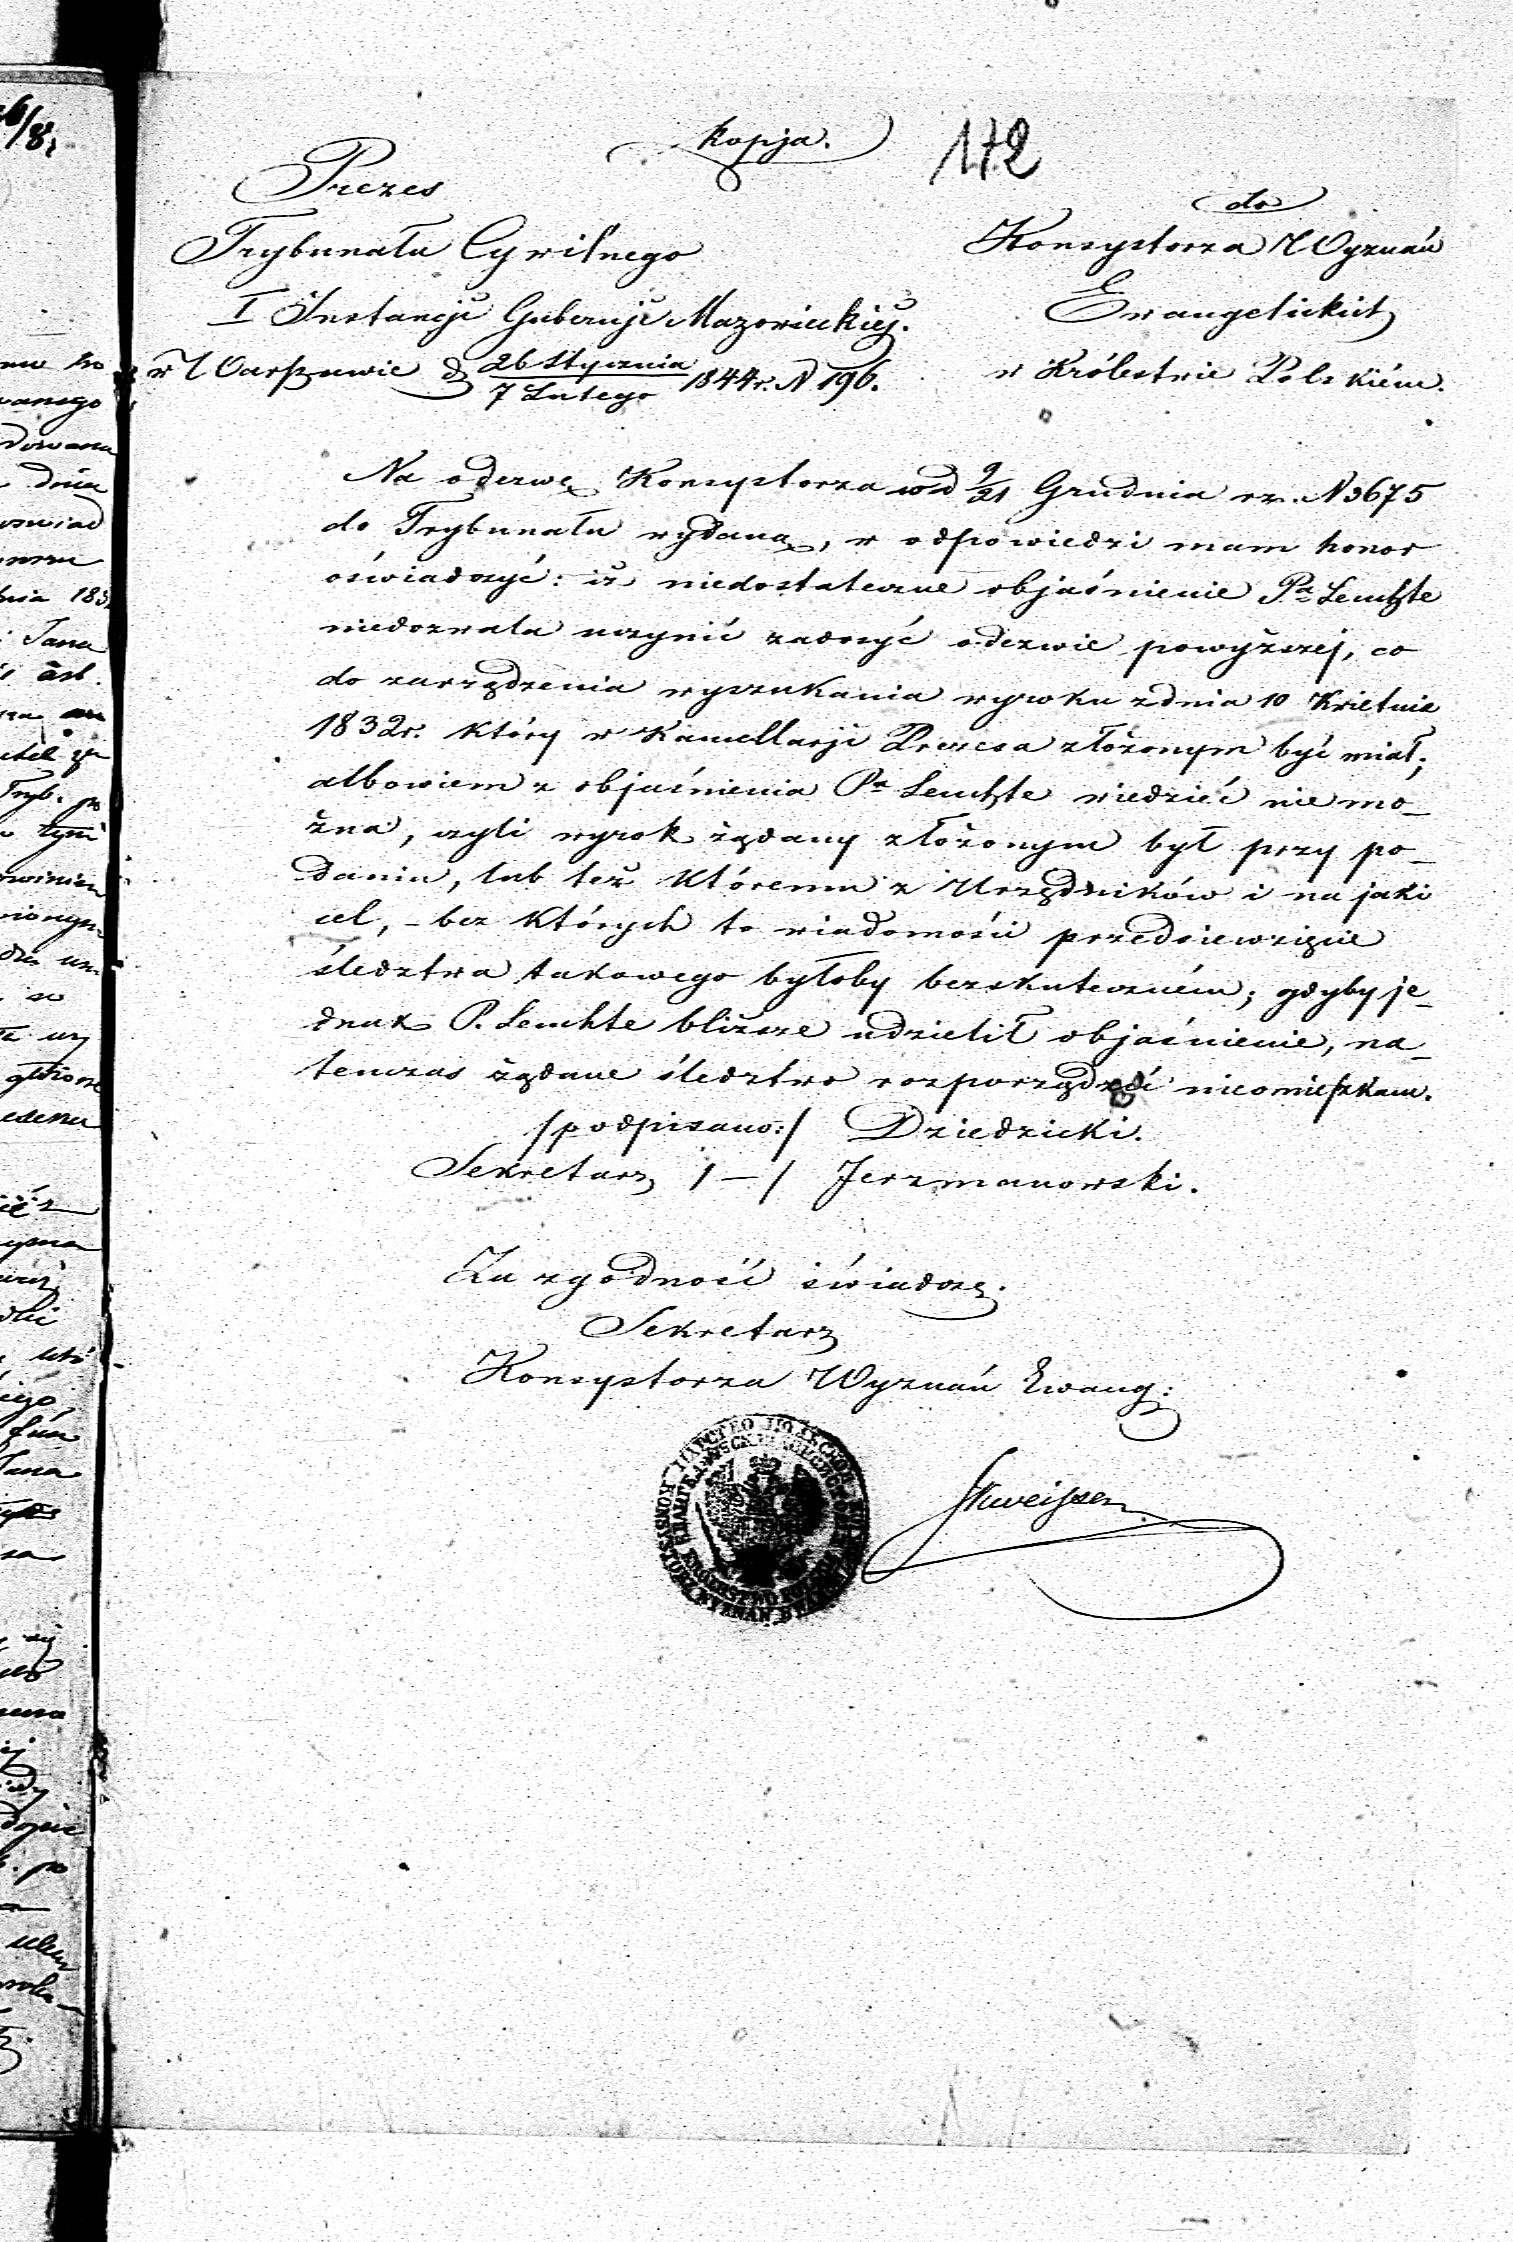 kopja.
172
Prezes
Trybunału Cywilnego
I Instancji Gubernji Mazowieckiej.
w Warszawie d. 26 Stycznia / 7 Lutego 1844 r. N 196.
do
Konsystorza Wyznań
Ewangelickich
w Królestwie Polskiém.
Na odezwę Konsystorza w d 9/21 Grudnia rz. N 3675
do Trybunału wydaną, w odpowiedzi mam honor
oświadczyć: iż niedostateczne objaśnienie Pa Leuchte
niedozwala uczynić zadosyć odezwie powyższej, co
do zarządzenia wyszukania wyroku z dnia 10 Kwietnia
1832 r. który w Kancellarji Prezesa złożonym być miał;
albowiem z objaśnienia Pa Leuchte wiedzieć nie mo-
żna, czyli wyrok żądany złożonym był przy po-
daniu, lub też któremu z Urzędników i na jaki
cel, - bez których to wiadomości przedsięwzięcie
śledztwa takowego byłoby bezskuteczném; gdyby je-
dnak P. Leuchte bliższe udzielił objaśnienie, na-
tenczas żądane śledztwo rozporządzić nieomieszkam.
/podpisano:/ Dziedzicki.
Sekretarz / - / Jerzmanowski.
Za zgodność świadczę.
Sekretarz
Konsystorza Wyznań Ewang: